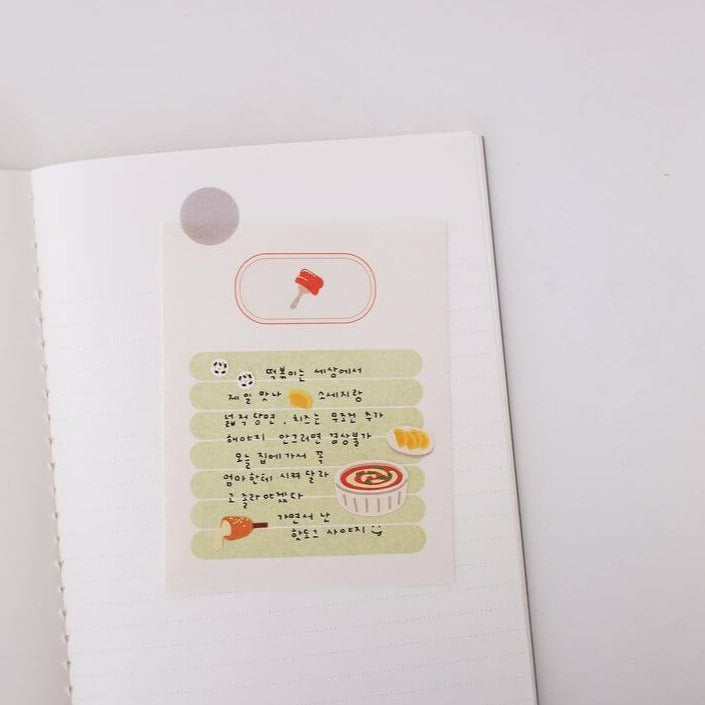 떡볶이는 세상에서
제일 맛나 소세지랑
넓적당면, 치즈는 무조건 추가
해야지 안그러면 겸상불가
오늘 집에가서 꼭
엄마한테 시켜달라
고 졸라야겠다
가면서 난
핫도그 사야지